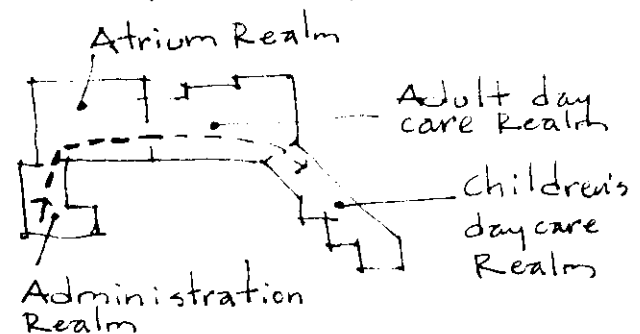 Atrium Realm
Adult day
care Realm
Children's
daycare
Realm
Administration
Realm